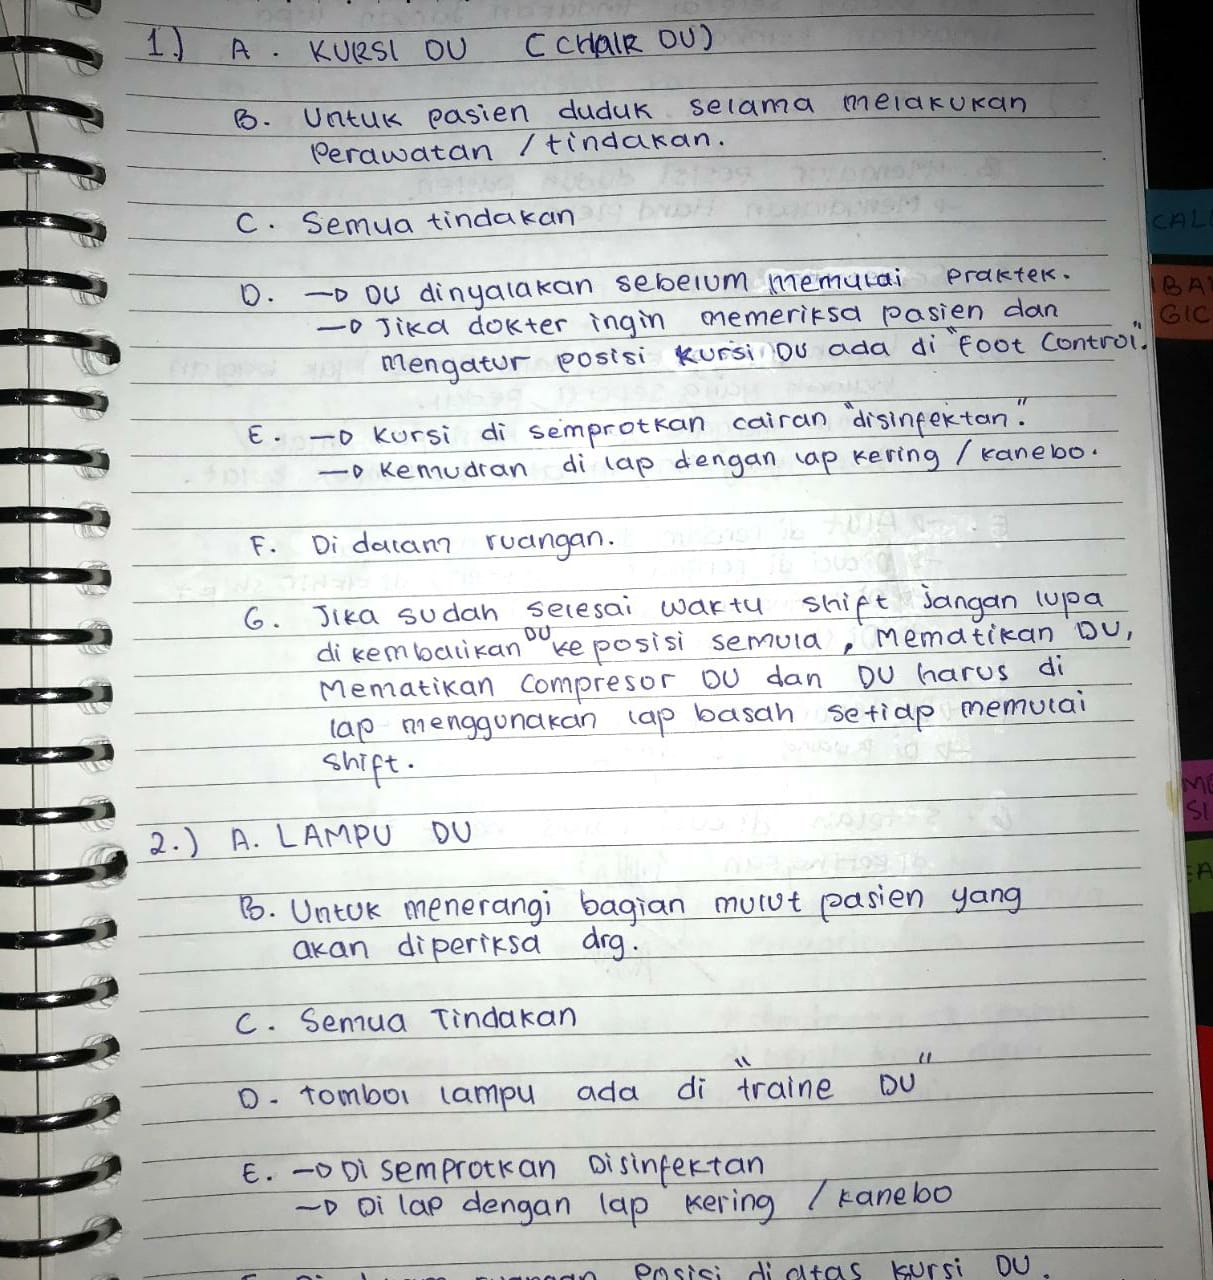 1.) A. KURSI DU (CHAIR DU)
B. Untuk pasien duduk selama melakukan
perawatan / tindakan.
C. Semua tindakan
D. → DU dinyalakan sebelum memulai praktek.
→ Jika dokter ingin memeriksa pasien dan
mengatur posisi kursi DU ada di "Foot Control".
E. → Kursi di semprotkan cairan "disinfektan."
→ Kemudian di lap dengan lap kering / kanebo.
F. Di dalam ruangan.
G. Jika sudah selesai waktu shift jangan lupa
di kembalikan DU ke posisi semula, mematikan DU,
mematikan compresor DU dan DU harus di
lap menggunakan lap basah setiap memulai
shift.
2.) A. LAMPU DU
B. Untuk menerangi bagian mulut pasien yang
akan diperiksa drg.
C. Semua Tindakan
D. tombol lampu ada di "traine DU"
E. → Di semprotkan Disinfektan
→ Di lap dengan lap kering / kanebo
posisi di atas kursi DU.
CAL
BA
GIC